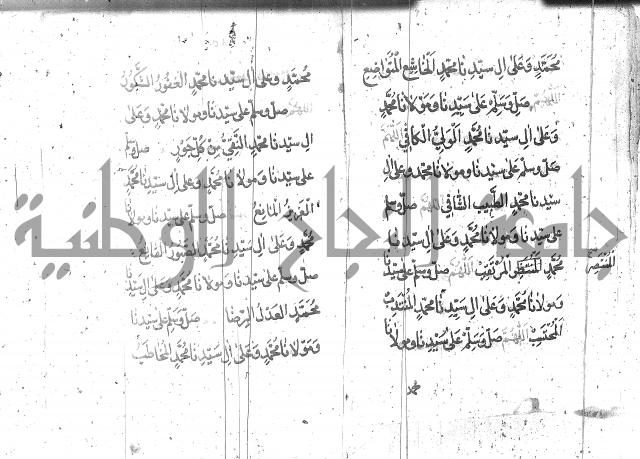 مُحَمَّدٍ وَعَلَىٰ الِ سَيِّدِنَا مُحَمَّدٍ الْخَاشِعِ الْمُتَوَاضِعِ
اللَّهُمَّ صَلِّ وَسَلِّمْ عَلَى سَيِّدِنَا وَمَوْلَانَا مُحَمَّدٍ
وَعَلَى الِ سَيِّدِنَا مُحَمَّدٍ الْوَلِيِّ الْكَافِي اللَّهُمَّ
صَلِّ وَسَلِّمْ عَلَى سَيِّدِنَا وَمَوْلَانَا مُحَمَّدٍ وَعَلَى الِ
سَيِّدِنَا مُحَمَّدٍ الطَّبِيبِ الشَّافِي اللَّهُمَّ صَلِّ وَسَلِّمْ
عَلَى سَيِّدِنَا وَمَوْلَانَا مُحَمَّدٍ وَعَلَى الِ سَيِّدِنَا
مُحَمَّدٍ الْمُنْتَظِرِ الْمُرْتَقِبِ اللَّهُمَّ صَلِّ وَسَلِّمْ عَلَى سَيِّدِنَا
وَمَوْلَانَا مُحَمَّدٍ وَعَلَى الِ سَيِّدِنَا مُحَمَّدٍ
الْمُحْتَسِبِ اللَّهُمَّ صَلِّ وَسَلِّمْ عَلَى سَيِّدِنَا وَمَوْلَانَا
محمد
مُحَمَّدٍ وَعَلَى الِ سَيِّدِنَا مُحَمَّدٍ الْغَفُورِ الشَّكُورِ
اللَّهُمَّ صَلِّ وَسَلِّمْ عَلَى سَيِّدِنَا وَمَوْلَانَا مُحَمَّدٍ وَعَلَى
الِ سَيِّدِنَا مُحَمَّدٍ النَّقِيِّ مِنْ كُلِّ جَوْرٍ صَلِّ وَسَلِّمْ
عَلَى سَيِّدِنَا وَمَوْلَانَا مُحَمَّدٍ وَعَلَى الِ سَيِّدِنَا مُحَمَّدٍ
الْمَانِعِ صَلِّ وَسَلِّمْ عَلَى سَيِّدِنَا وَمَوْلَانَا
مُحَمَّدٍ وَعَلَى الِ سَيِّدِنَا مُحَمَّدٍ الصَّبُورِ الْقَانِعِ
صَلِّ وَسَلِّمْ عَلَى سَيِّدِنَا وَمَوْلَانَا مُحَمَّدٍ وَعَلَى الِ سَيِّدِنَا
مُحَمَّدٍ الْعَدْلِ الرِّضَا صَلِّ وَسَلِّمْ عَلَى سَيِّدِنَا
وَمَوْلَانَا مُحَمَّدٍ وَعَلَى الِ سَيِّدِنَا مُحَمَّدٍ الْمُخَاطَبِ
جامعة النجاح الوطنية